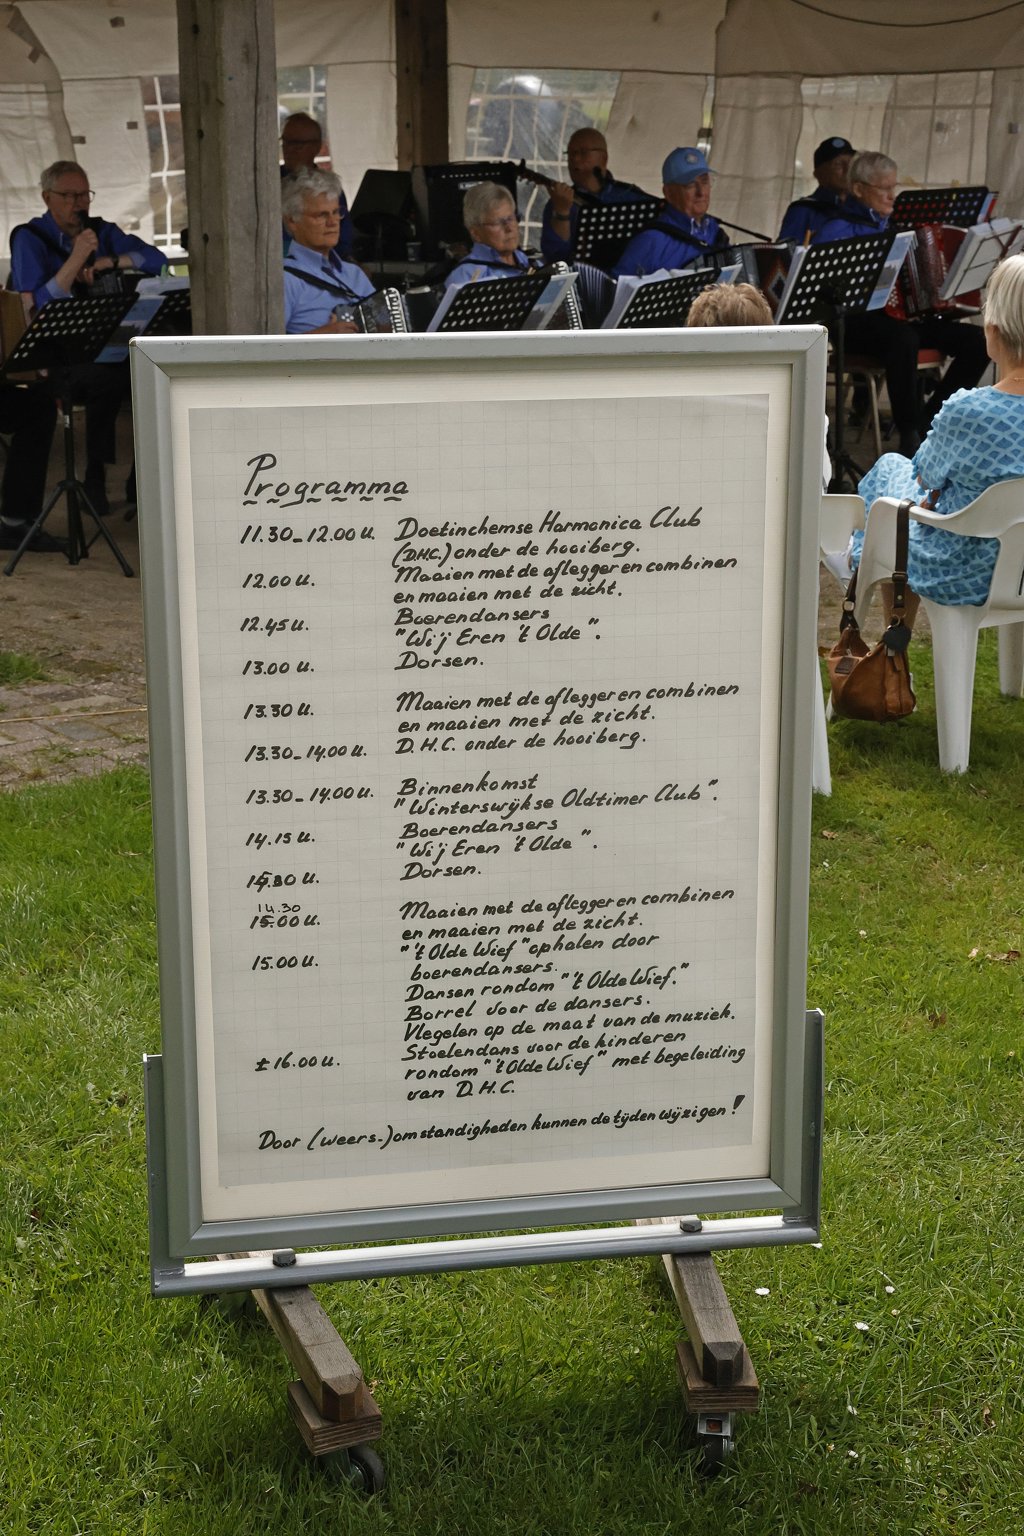 Programma
11.30-12.00 u. Doetinchemse Harmonica Club
(D.H.C.) onder de hooiberg.
12.00 u. Maaien met de aflegger en combinen
en maaien met de zicht.
12.45 u. Boerendansers
"Wij Eren 't Olde".
13.00 u. Dorsen.
13.30 u. Maaien met de aflegger en combinen
en maaien met de zicht.
13.30-14.00 u. D.H.C. onder de hooiberg.
13.30-14.00 u. Binnenkomst
"Winterswijkse Oldtimer Club".
14.15 u. Boerendansers
"Wij Eren 't Olde".
u. Dorsen.
14.30
15.00 u. Maaien met de aflegger en combinen
en maaien met de zicht.
15.00 u. "'t Olde Wief" ophalen door
boerendansers.
Dansen rondom "'t Olde Wief."
Borrel voor de dansers.
Vlegelen op de maat van de muziek.
± 16.00 u. Stoelendans voor de kinderen
rondom "'t Olde Wief" met begeleiding
van D.H.C.
Door (weers-) omstandigheden kunnen de tijden wijzigen!